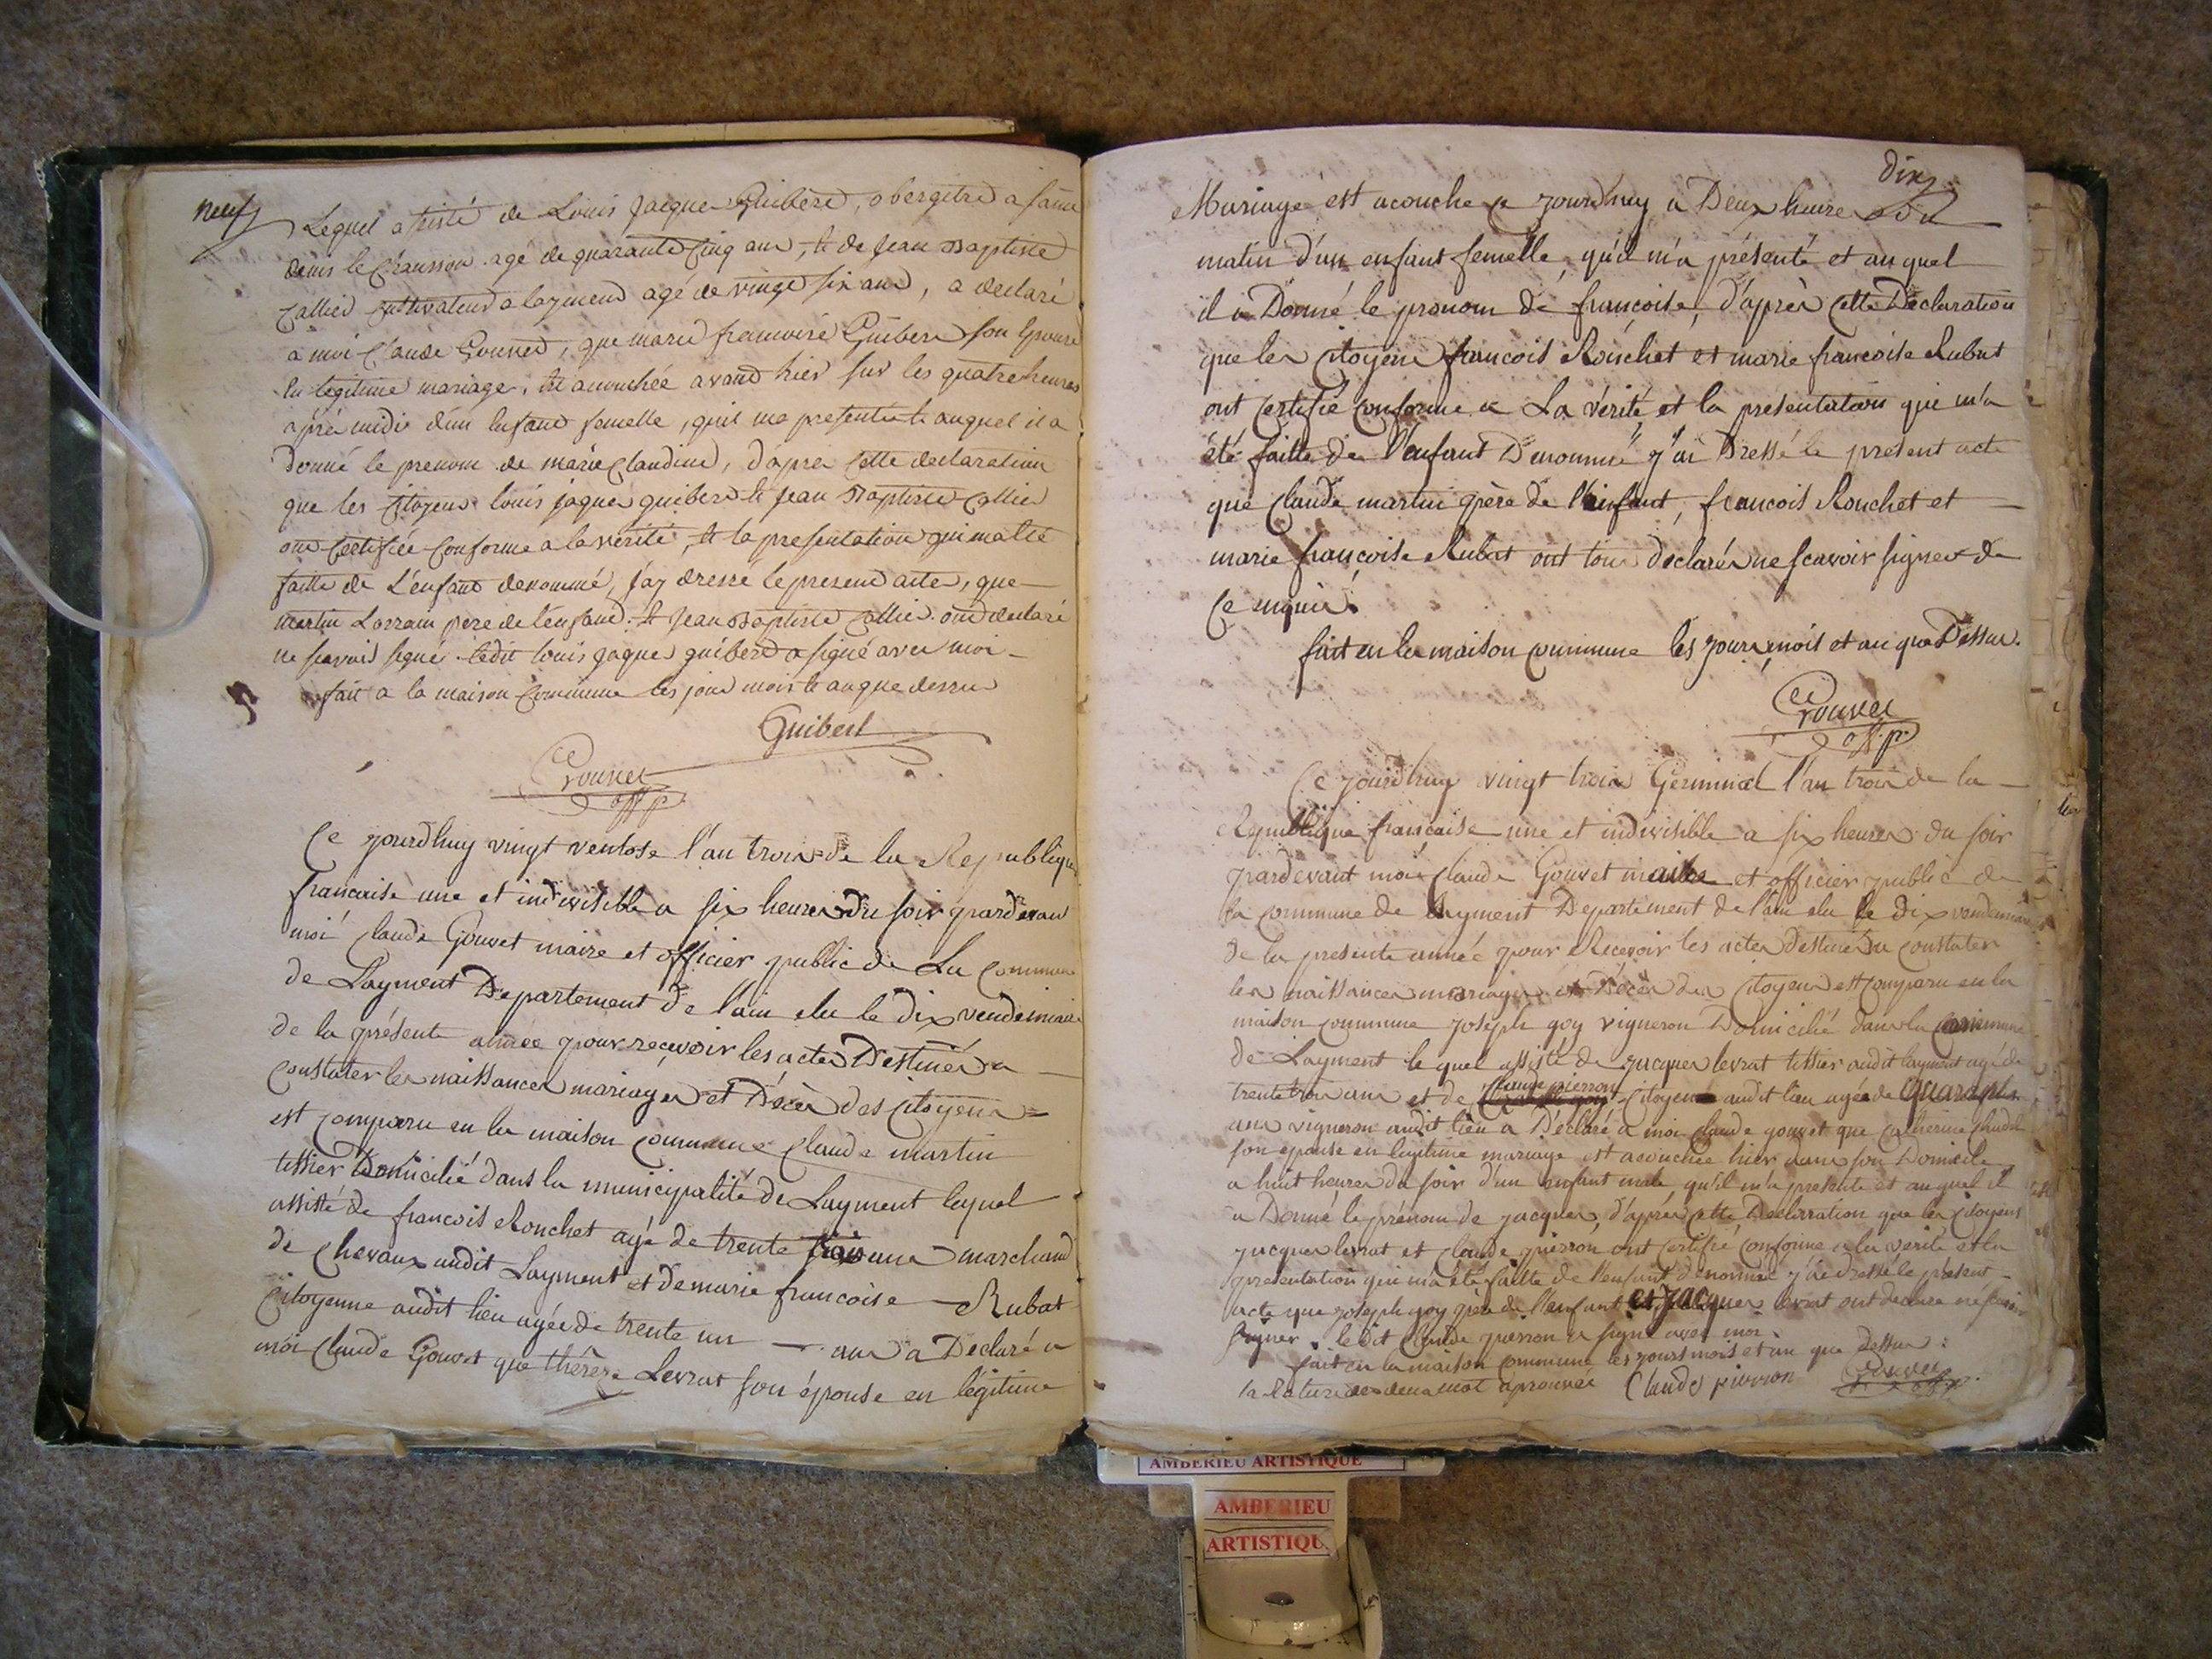 neuf
Lequel assisté de Louis Jacque Guibere, obergitre a saint
denis le Chausson agé de quarante Cinq ans, et de Jean Baptiste
Callied Cultivateur a layment agé de vingt six ans, a declaré
à moi Claude Gouvet, que marie francoise Guibere son Epouse
En legitime mariage, Est acouchée avand hier sur les quatre heures
après midi d'un Enfant femelle, quil ma presentée et auquel il a
donné le prenom de marie Claudine, d'apres Cette declaration
que les Citoyens louis jaques guibere et Jean Baptiste Callie
ont Certifiée Conforme a la verité, et la presentation qui ma été
faitte de L'enfant denommé, j'ay dressé le present acte, que
martin Lorrain pere de l'enfant et Jean Baptiste Callie ont declaré
ne scavoir signé ledit louis jaques guibere a signé avec moi
fait a la maison Commune les jour mois et an que dessus
Guibert
Gouvet
off p.
Ce jourdhuy vingt ventose l'an trois de la Republique
francaise une et indivisible a six heures du soir pardevant
moi Claude Gouvet maire et officier public de La Commune
de Layment Departement de l'ain elu le dix vendemiaire
de la présente année pour recevoir les actes Destinés a
Constater les naissances mariages et Décès des Citoyens
est comparu en la maison commune Claude martin
tissier Domicilié dans la municipalité de Layment lequel
assisté de francois Rouchet agé de trente trois ans marchand
de Chevaux audit Layment et de marie francoise Rubat
Citoyenne audit lieu agée de trente un ans a Declaré a
moi Claude Gouvet que thérese Levrat son épouse en légitime
dix
Mariage est acouche a jourdhuy a Deux heures du
matin d'un enfant femelle, qu'il m'a présenté et auquel
il a Donné le pronom de francoise, d'après Cette Declaration
que les Citoyens francois Rouchet et marie francoise Rubat
ont Certifié Conforme a La vérité, et la présentation qui m'a
été faitte de l'enfant Denommé j'ai Dressé le present acte
que Claude martin père de l'enfant, francois Rouchet et
marie françoise Rubat ont tous declarés ne scavoir signer de
Ce enquis.
fait en la maison commune les jours, mois et an que Dessus.
Gouvet
off. p.
Ce jourdhuy vingt trois Germinal l'an trois de la
Republique française une et indivisible a six heures du soir
pardevant moi Claude Gouvet maire et officier public de
la Commune de Layment Departement de l'ain elu le dix vendemiaire
de la presente année pour Recevoir les actes destinés a Constater
les naissances mariages et Décès des Citoyens est Comparu en la
maison commune joseph goy vigneron Domicilié dans la Commune
de Layment le quel assisté de jacques levrat tissier audit layment agé de
trente trois ans et de Claude pierron Citoyen audit lieu agé de quarante
ans vigneron audit lieu a Déclaré a moi Claude gouvet que Catherine
son épouse en legitime mariage est acouchée hier dans son Domicile
a huit heures du soir d'un enfant male qu'il m'a presenté et auquel il
a Donné le prénom de jacques, d'après cette Declaration que les Citoyens
jacques levrat et Claude pierron ont Certifié Conforme a la verité et la
presentation qui m'a été faitte de l'enfant denommé j'ai dressé le present
acte que joseph goy père de l'enfant et jacques levrat ont declaré ne scavoir
signer, le dit Claude pierron a signé avec moi.
fait en la maison commune les jours mois et an que dessus :
la Rature des deux mot aprouvée Claude pierron Gouvet
off p.
AMBERIEU ARTISTIQUE
AMBERIEU
ARTISTIQU